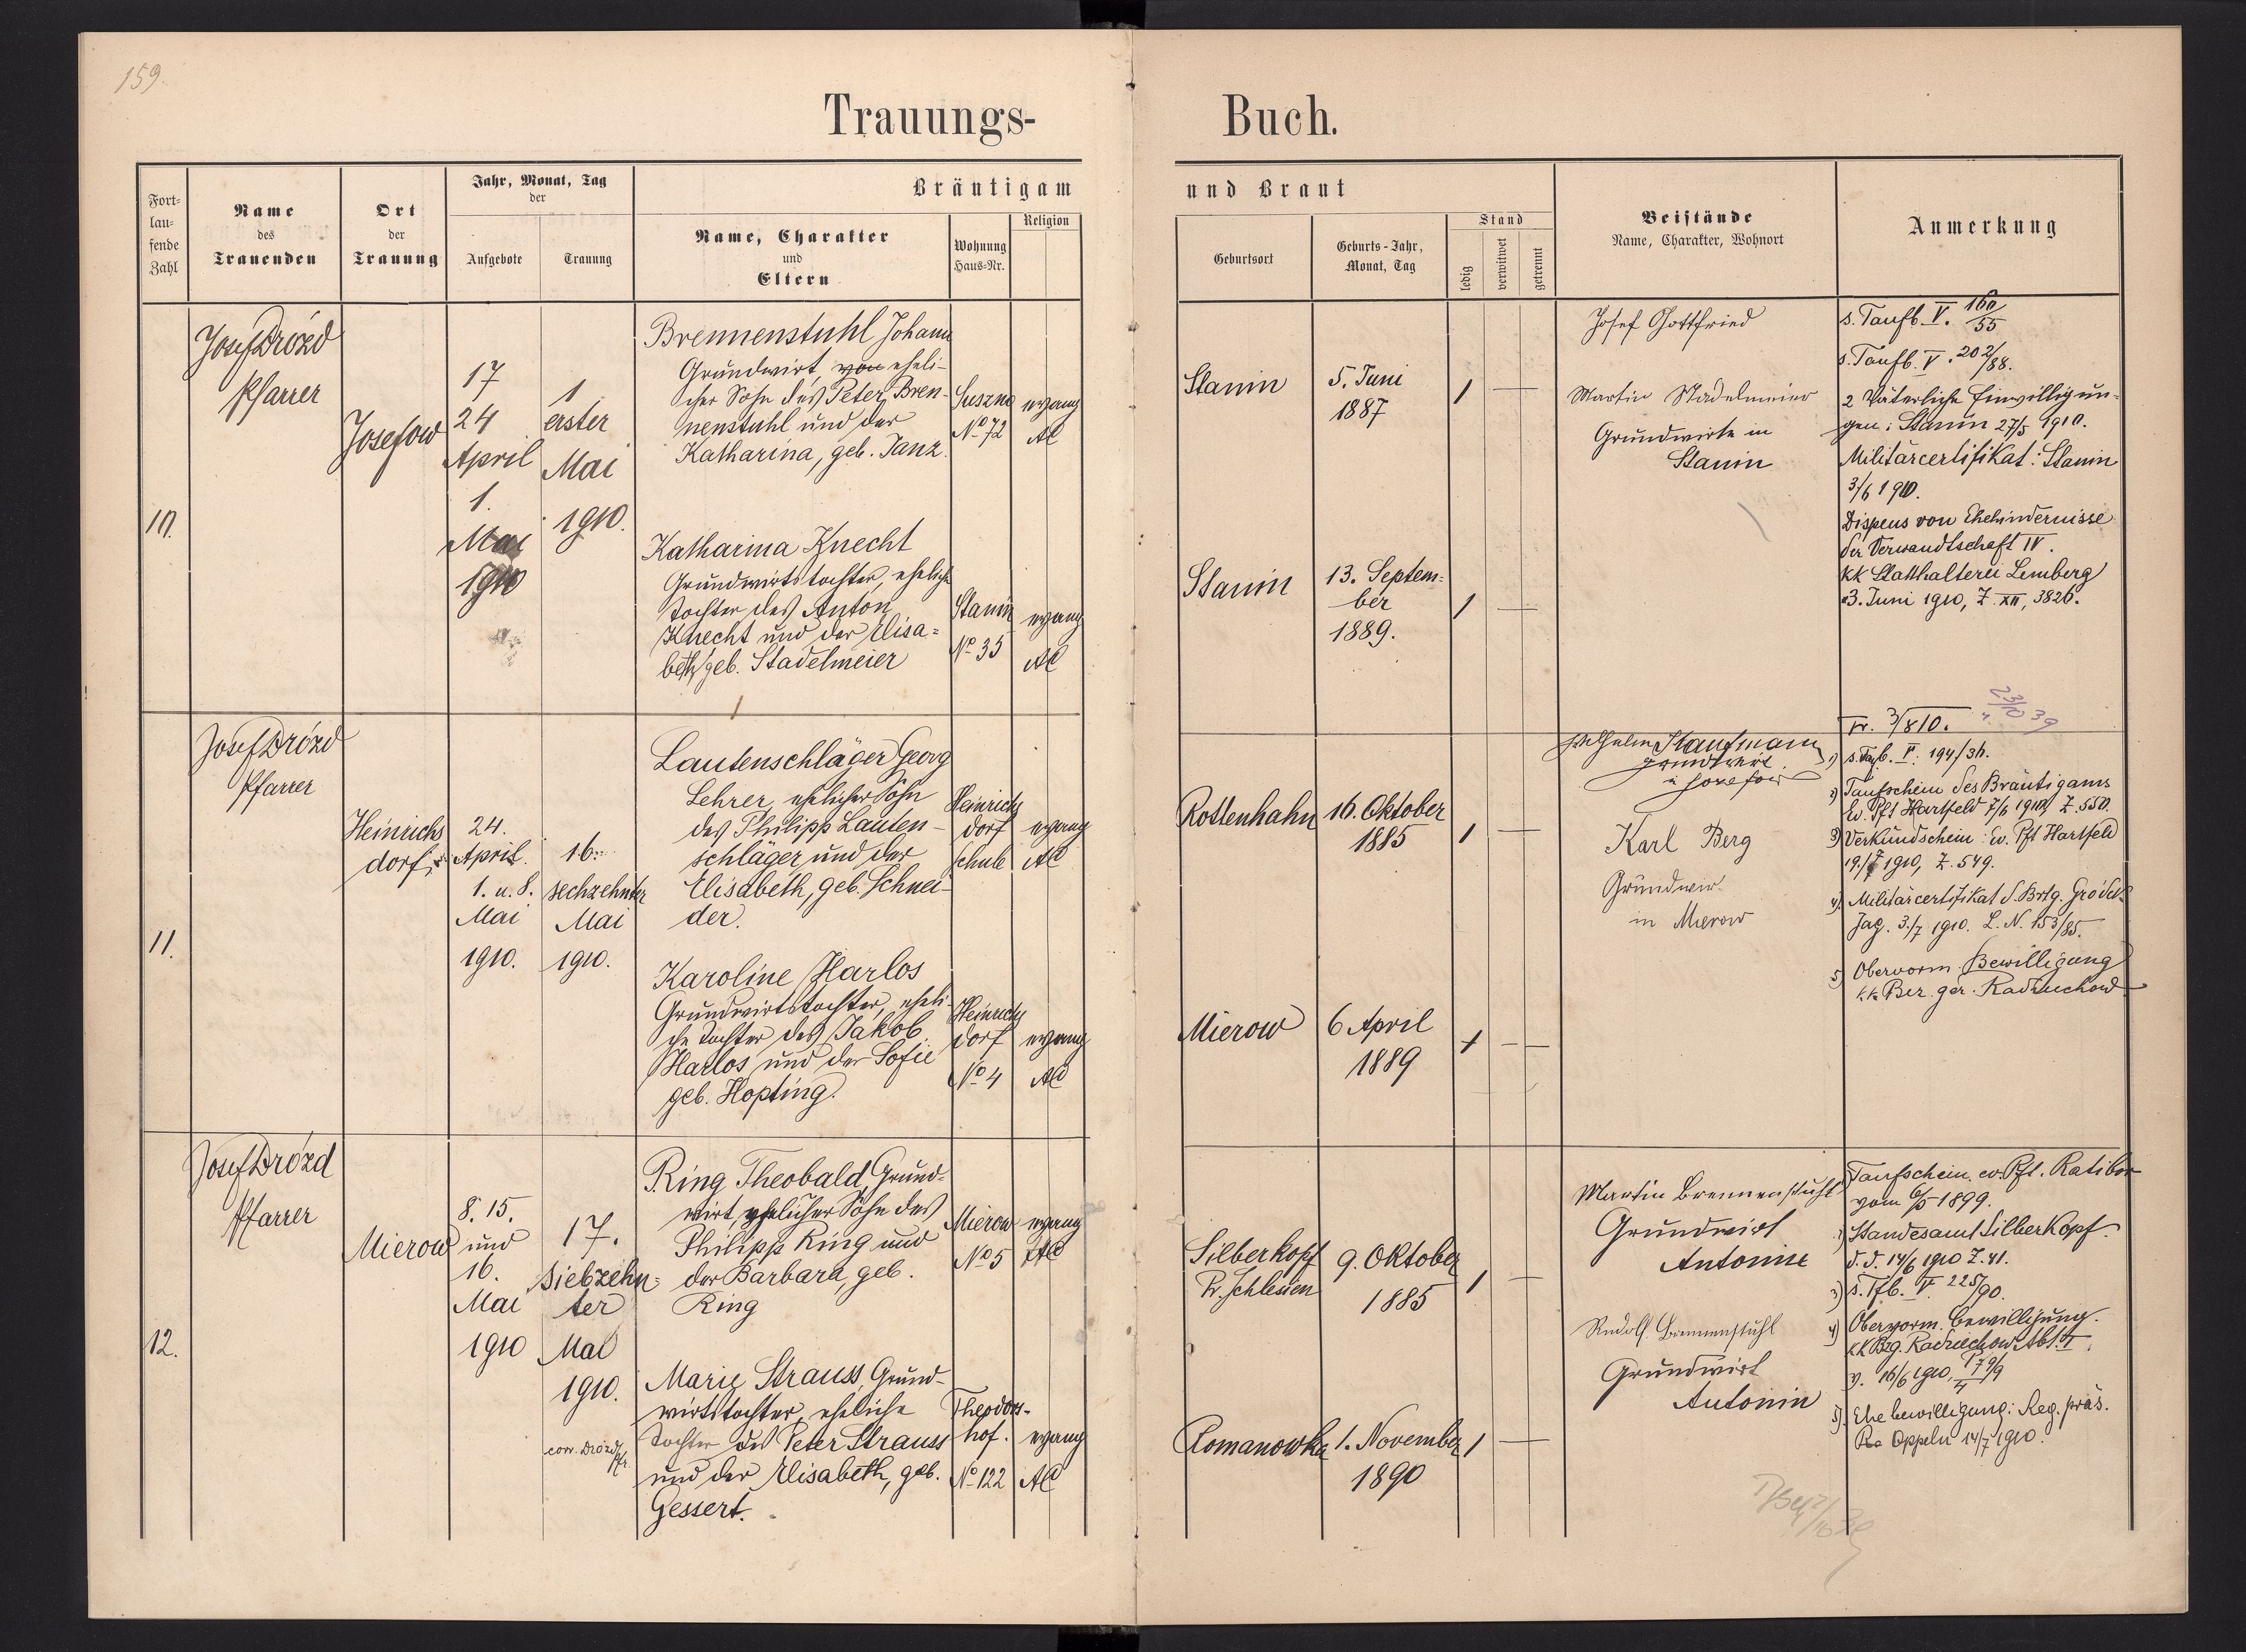 159.
Trauungs-
Buch.
Fort-
lau-
fende
Zahl
Name
des
Trauenden
Ort
der
Trauung
Jahr, Monat, Tag
der
Aufgebote
Trauung
Bräutigam
Name, Charakter
und
Eltern
Wohnung
Haus-Nr.
Religion
und Braut
Geburtsort
Geburts-Jahr,
Monat, Tag
Stand
ledig
verwitwet
getrennt
Beistände
Name, Charakter, Wohnort
Anmerkung
10.
Josef Drózd
Pfarrer
Josefow
17
24
April
1.
Mai
1910
1
erster
Mai
1910.
Brennenstuhl Johann
Grundwirt, von eheli-
cher Sohn des Peter Bren-
nenstuhl und der
Katharina, geb. Tanz.
Suszno
No 72
evang
AC
Katharina Knecht
Grundwirtstochter, eheliche
Tochter des Anton
Knecht und der Elisa=
beth geb. Stadelmeier
Stanin
No 35
evang
AC
Stanin
5. Juni
1887
1
Stanin
13. Septem-
ber
1889.
1
Josef Gottfried
Martin Stadelmeier
Grundwirte in
Stanin
s. Taufb. V. 160/55
s. Taufb. V. 202/88.
2 Väterliche Einwilligun-
gen: Stanin 27/5 1910.
Militärcertifikat: Stanin
3/6 1910.
Dispens von Ehehindernisse
der Verwandtschaft IV.
KK Statthalterei Lemberg
3. Juni 1910, Z. XII, 3826.
11.
Josef Drózd
Pfarrer
Heinrichs
dorf
24.
April.
1. u. 8.
Mai
1910.
16.
sechzehnter
Mai
1910.
Lautenschläger Georg
Lehrer, ehelicher Sohn
des Philipp Lauten-
schläger und der
Elisabeth, geb. Schnei-
der.
Heinrichs
dorf
Schule
evang
AC
Karoline Harlos
Grundwirtstochter, eheli-
che Tochter des Jakob
Harlos und der Sofie
geb. Hopting.
Heinrichs
dorf
No 4
evang
AC
Rottenhahn
16. Oktober
1885
1
Mierow
6 April
1889
1
Wilhelm Kaufmann
Grundwirt
in Josefow
Karl Berg
Grundwir
in Mierow
23/10 39
1) s. Tfb. V. 194/36.
2) Taufschein des Bräutigams
Ev. Pft Hartfeld 7/6 1910, Z. 550.
3) Verkündschein: Ev. Pft Hartfeld
19./7 1910, Z. 549.
4) Militärcertifikat d. Brtg. Gródek
Jag. 3./7 1910. L. N. 153/85.
5) Obervorm. Bewilligung
k.k. Bez. ger. Radziechow
12.
Josef Drózd
Pfarrer
Mierow
8. 15.
und
16.
Mai
1910
17.
siebzehn=
ter
Mai
1910.
corr. Drózd Pfr.
Ring Theobald, Grund-
wirt, ehelicher Sohn des
Philipp Ring und
der Barbara, geb.
Ring
Mierow
No 5
evang
AC
Marie Strauss, Grund-
wirtstochter, eheliche
Tochter des Peter Strauss
und der Elisabeth, geb.
Gessert.
Theodors-
hof.
No 122
evang
AC
Silberkopf
Pr. Schlesien
9. Oktober
1885
1
Romanowka
1. November
1890
1
Martin Brennenstuhl
Grundwirt
Antonin
Rudolf Brennenstuhl
Grundwirt
Antonin
Taufschein ev. Pft. Ratibor
vom 6/5 1899.
Standesamt Silberkopf.
d. d. 14/6 1910 Z. 41.
3) s. Tfb. V. 225/90.
4) Obervorm. Bewilligung.
KK Bzg. Radziechow Abt. I
v. 16/6 1910,
5) Ehebewilligung: Reg. präs.
Oppeln 14/7 1910.